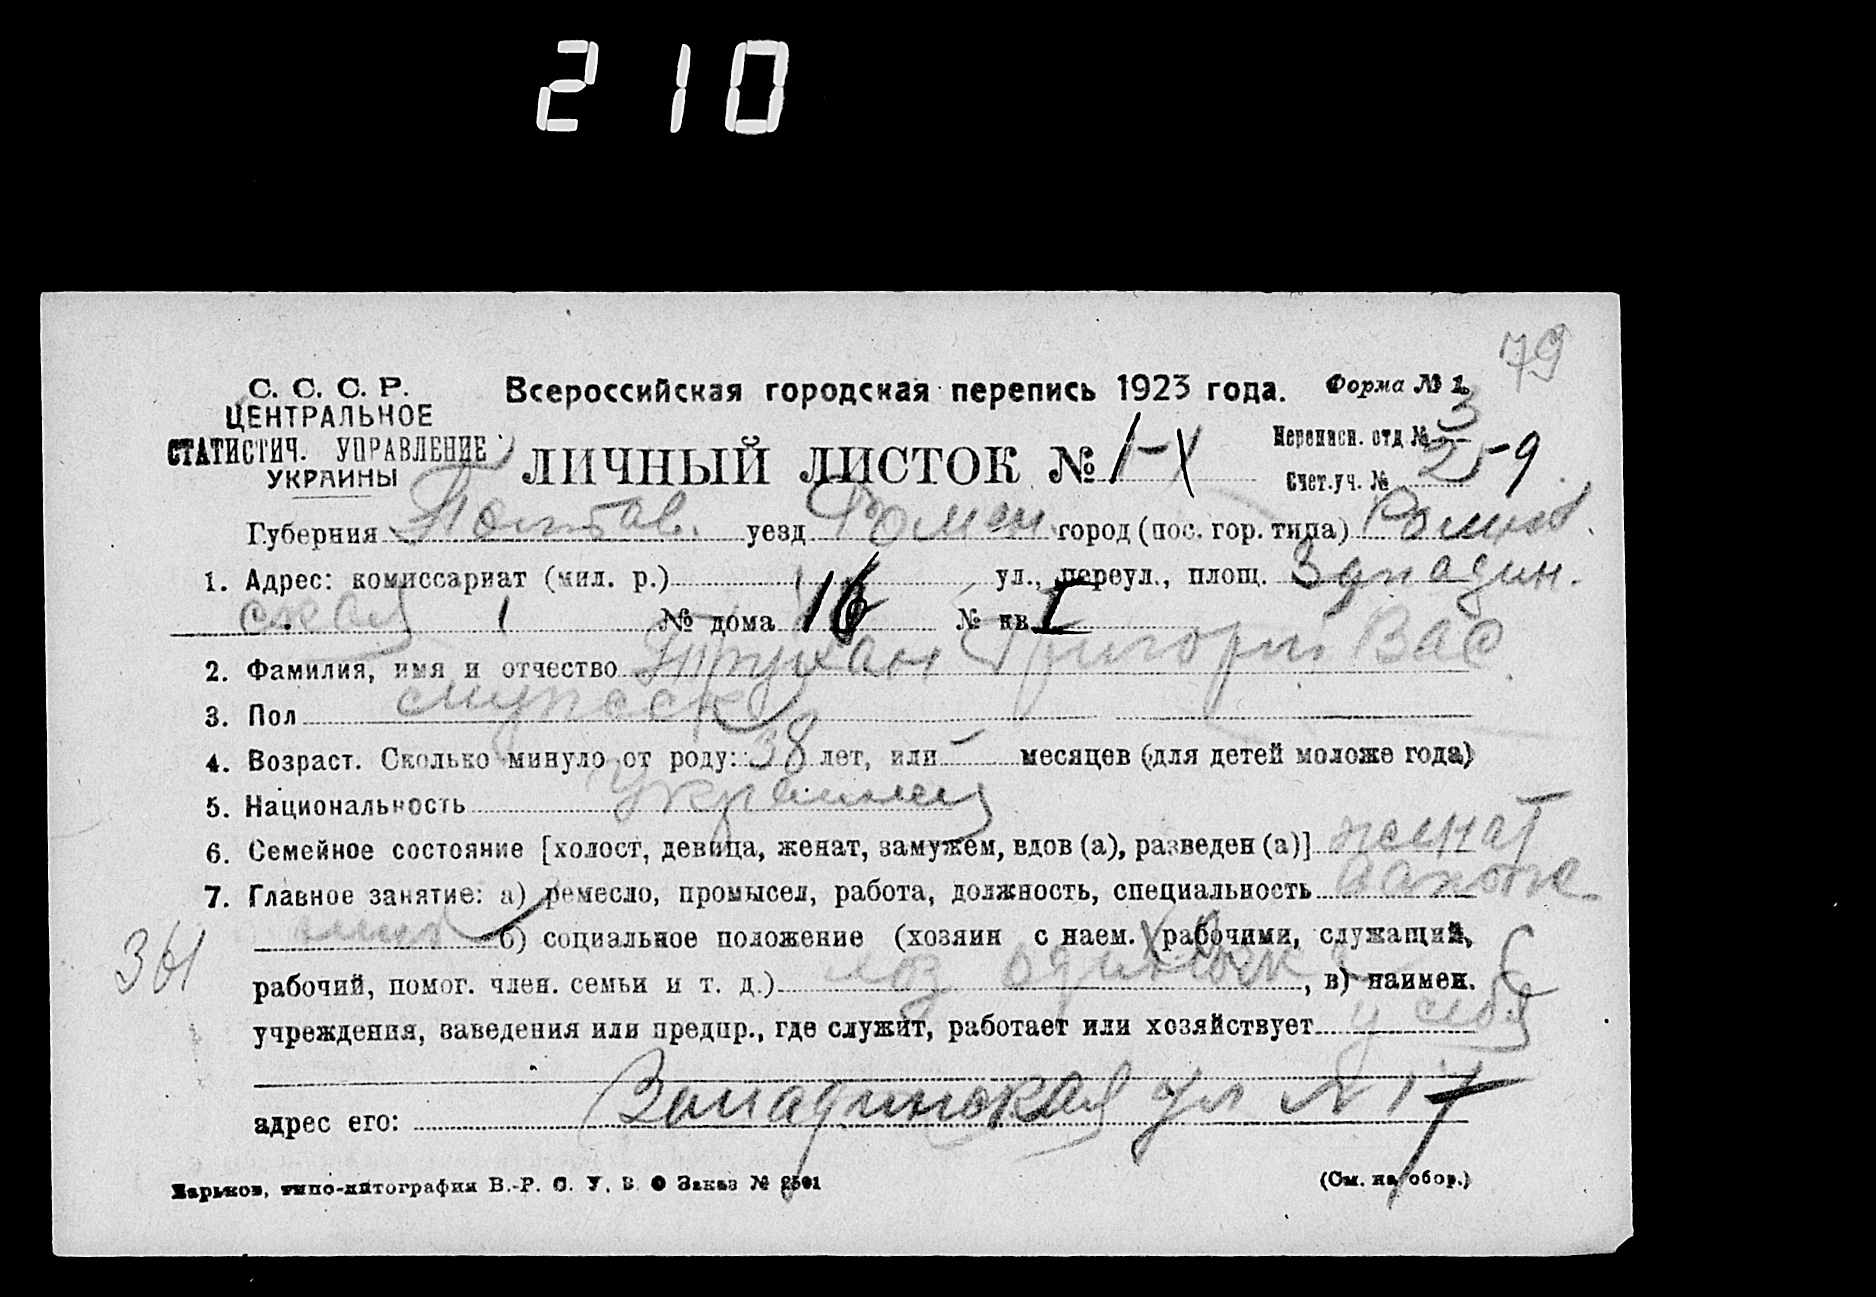 210
79
С. С. С. Р.
ЦЕНТРАЛЬНОЕ
СТАТИСТИЧ. УПРАВЛЕНИЕ
УКРАИНЫ
Всероссийская городская перепись 1923 года. Форма № 1.
ЛИЧНЫЙ ЛИСТОК № 1-
Переписн. отд № 3
Счет.уч. № 25-9
Губерния Полтав. уезд Ромен город (пос. гор. типа) Ромны
1. Адрес: комиссариат (мил. р.) ул., переул., площ. Западин.
ская 1 № дома 16 № кв I
2. Фамилия, имя и отчество Трухан Григорий Вас
3. Пол мужск
4. Возраст. Сколько минуло от роду: 38 лет, или - месяцев (для детей моложе года)
5. Национальность Украинец
6. Семейное состояние [холост, девица, женат, замужем, вдов (а), разведен (а)] женат
7. Главное занятие: а) ремесло, промысел, работа, должность, специальность сапож
ник б) социальное положение (хозяин с наем. рабочими, служащий,
361
рабочий, помог. член. семьи и т. д.) хоз одиночка, в) наимен.
учреждения, заведения или предпр., где служит, работает или хозяйствует у себя
адрес его: Западинская ул № 17
Харьков, типо-литография В.-Р. С. У. В. О Заказ № 2501 (См. на обор.)